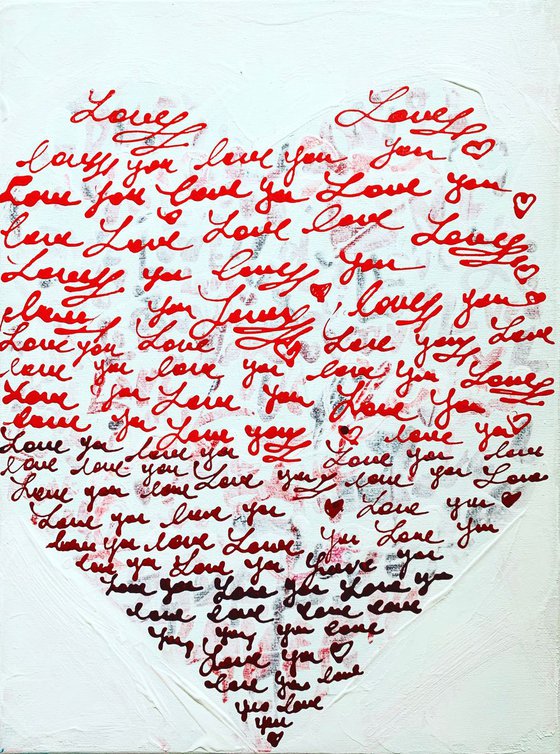 Love Love
love you love you you
Love you love you Love you
love Love Love love Love
Love you love you
love you Love love you
Love you Love Love you Love
love you love you love you Love
Love you Love you Love you
love you Love you love you
Love you love you Love you love
love love you Love you love you Love
Love you love Love you
Love you love you you Love you
love you love Love you love you
love you Love you
Love you Love you Love you
love love love love
you you you love
Love you
love you love
you love
you